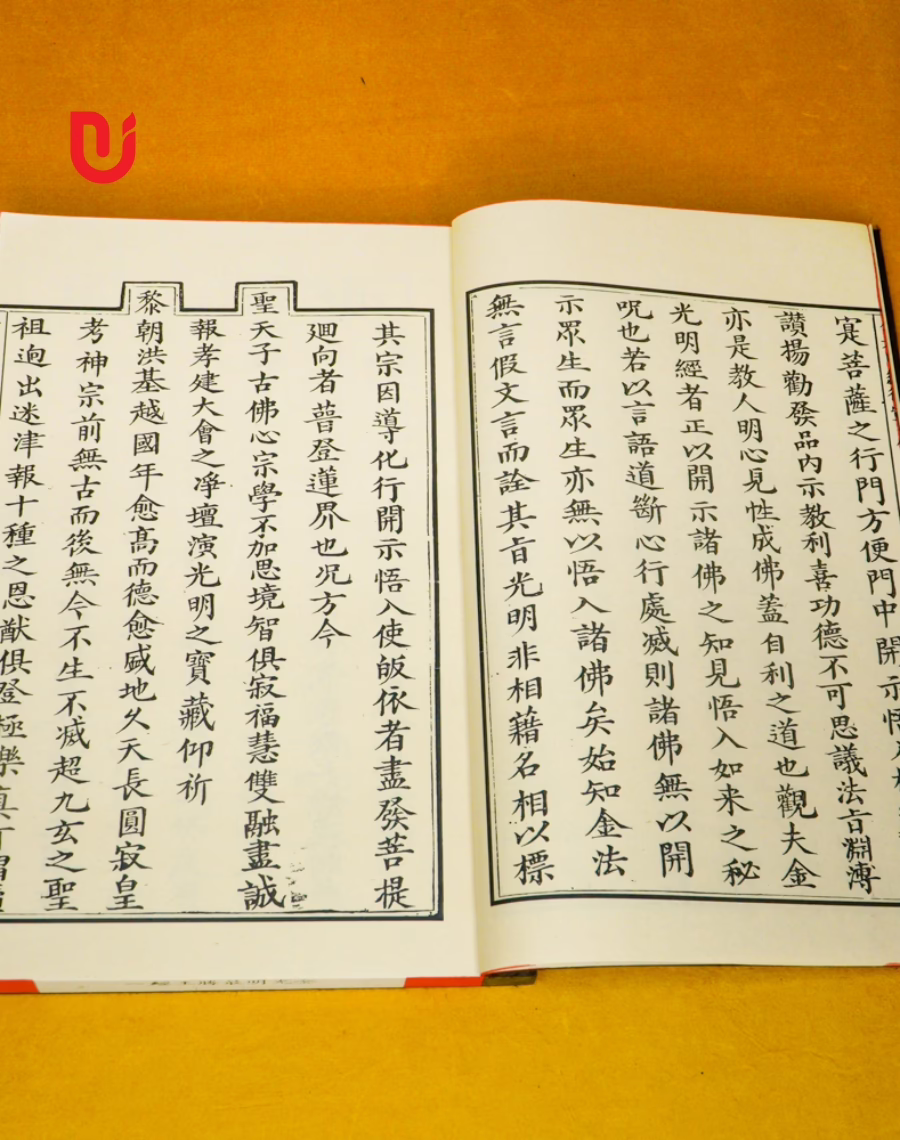 寔菩薩之行門方便門中開示悟入
讚揚勸發品內示教利喜功德不可思議法旨淵溥
亦是教人明心見性成佛蓋自利之道也觀夫金
光明經者正以開示諸佛之知見悟入如来之秘
呪也若以言語道斷心行處滅則諸佛無以開
示眾生而眾生亦無以悟入諸佛矣始知金法
無言假文言而詮其旨光明非相藉名相以標
其宗因導化行開示悟入使皈依者盡發菩提
廻向者普登蓮界也况方今
聖天子古佛心宗學不加思境智俱寂福慧雙融盡誠
報孝建大會之淨壇演光明之寶藏仰祈
黎朝洪基越國年愈髙而德愈盛地久天長圓寂皇
考神宗前無古而後無今不生不滅超九玄之聖
祖逈出迷津報十種之恩猷俱登極樂真可謂